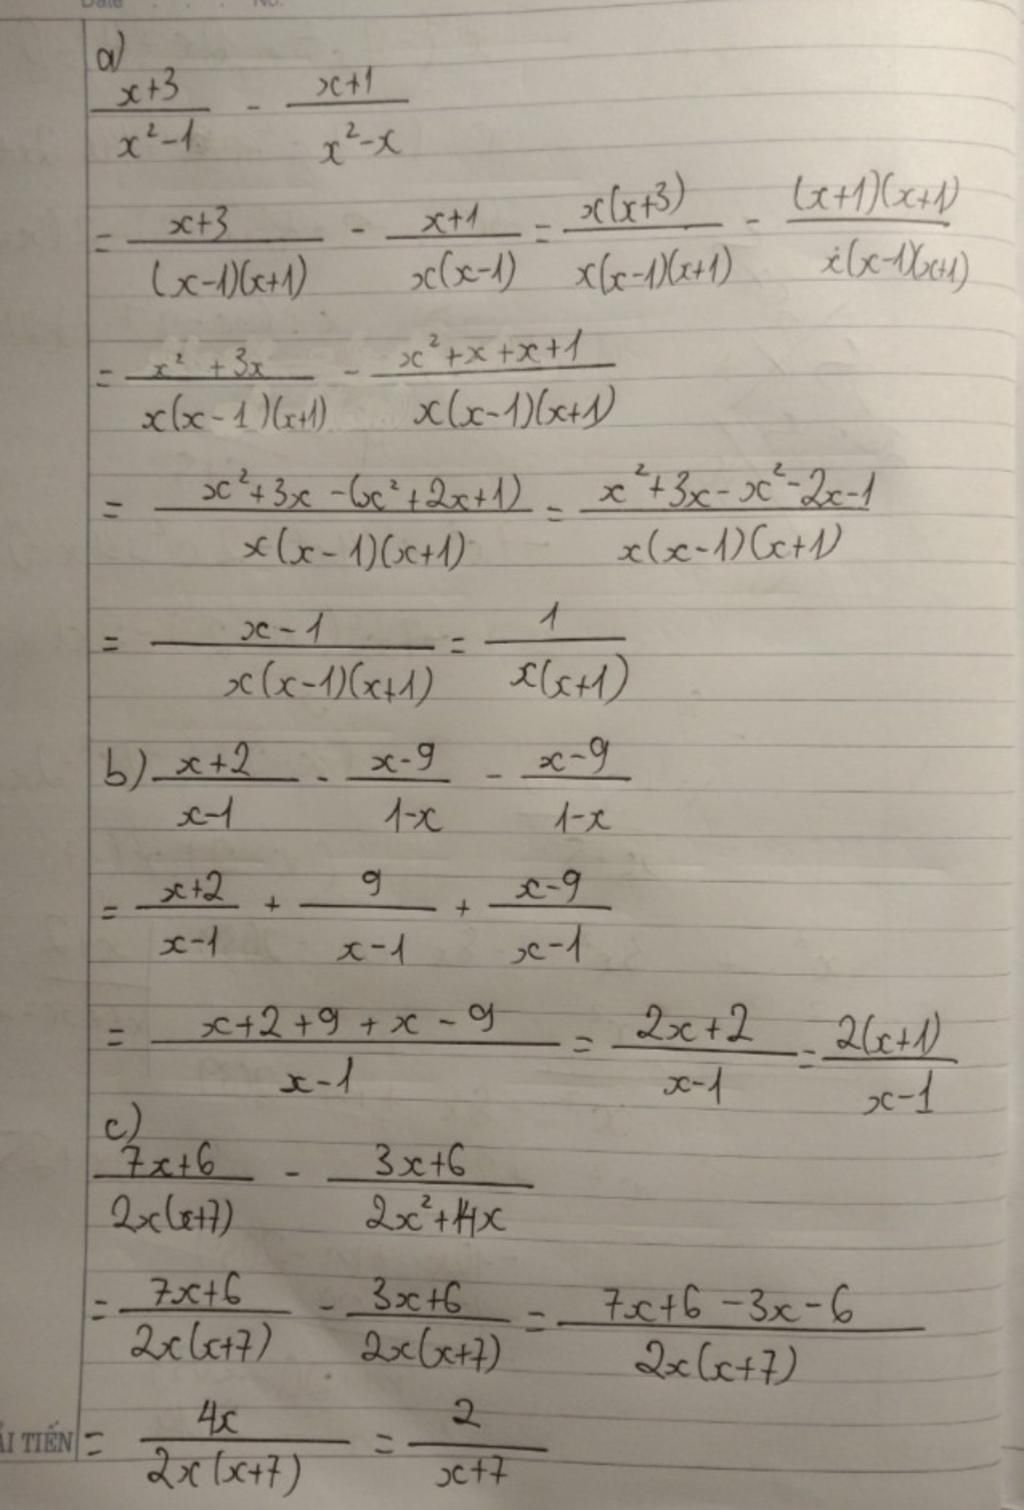 Date . . . No.
a)
x+3/x²-1 - x+1/x²-x
= x+3/(x-1)(x+1) - x+1/x(x-1) = x(x+3)/x(x-1)(x+1) - (x+1)(x+1)/x(x-1)(x+1)
= x²+3x/x(x-1)(x+1) - x²+x+x+1/x(x-1)(x+1)
= x²+3x-(x²+2x+1)/x(x-1)(x+1) = x²+3x-x²-2x-1/x(x-1)(x+1)
= x-1/x(x-1)(x+1) = 1/x(x+1)
b) x+2/x-1 - x-9/1-x - x-9/1-x
= x+2/x-1 + 9/x-1 + x-9/x-1
= x+2+9+x-9/x-1 = 2x+2/x-1 = 2(x+1)/x-1
c)
7x+6/2x(x+7) - 3x+6/2x²+14x
= 7x+6/2x(x+7) - 3x+6/2x(x+7) = 7x+6-3x-6/2x(x+7)
= 4x/2x(x+7) = 2/x+7
TIẾN